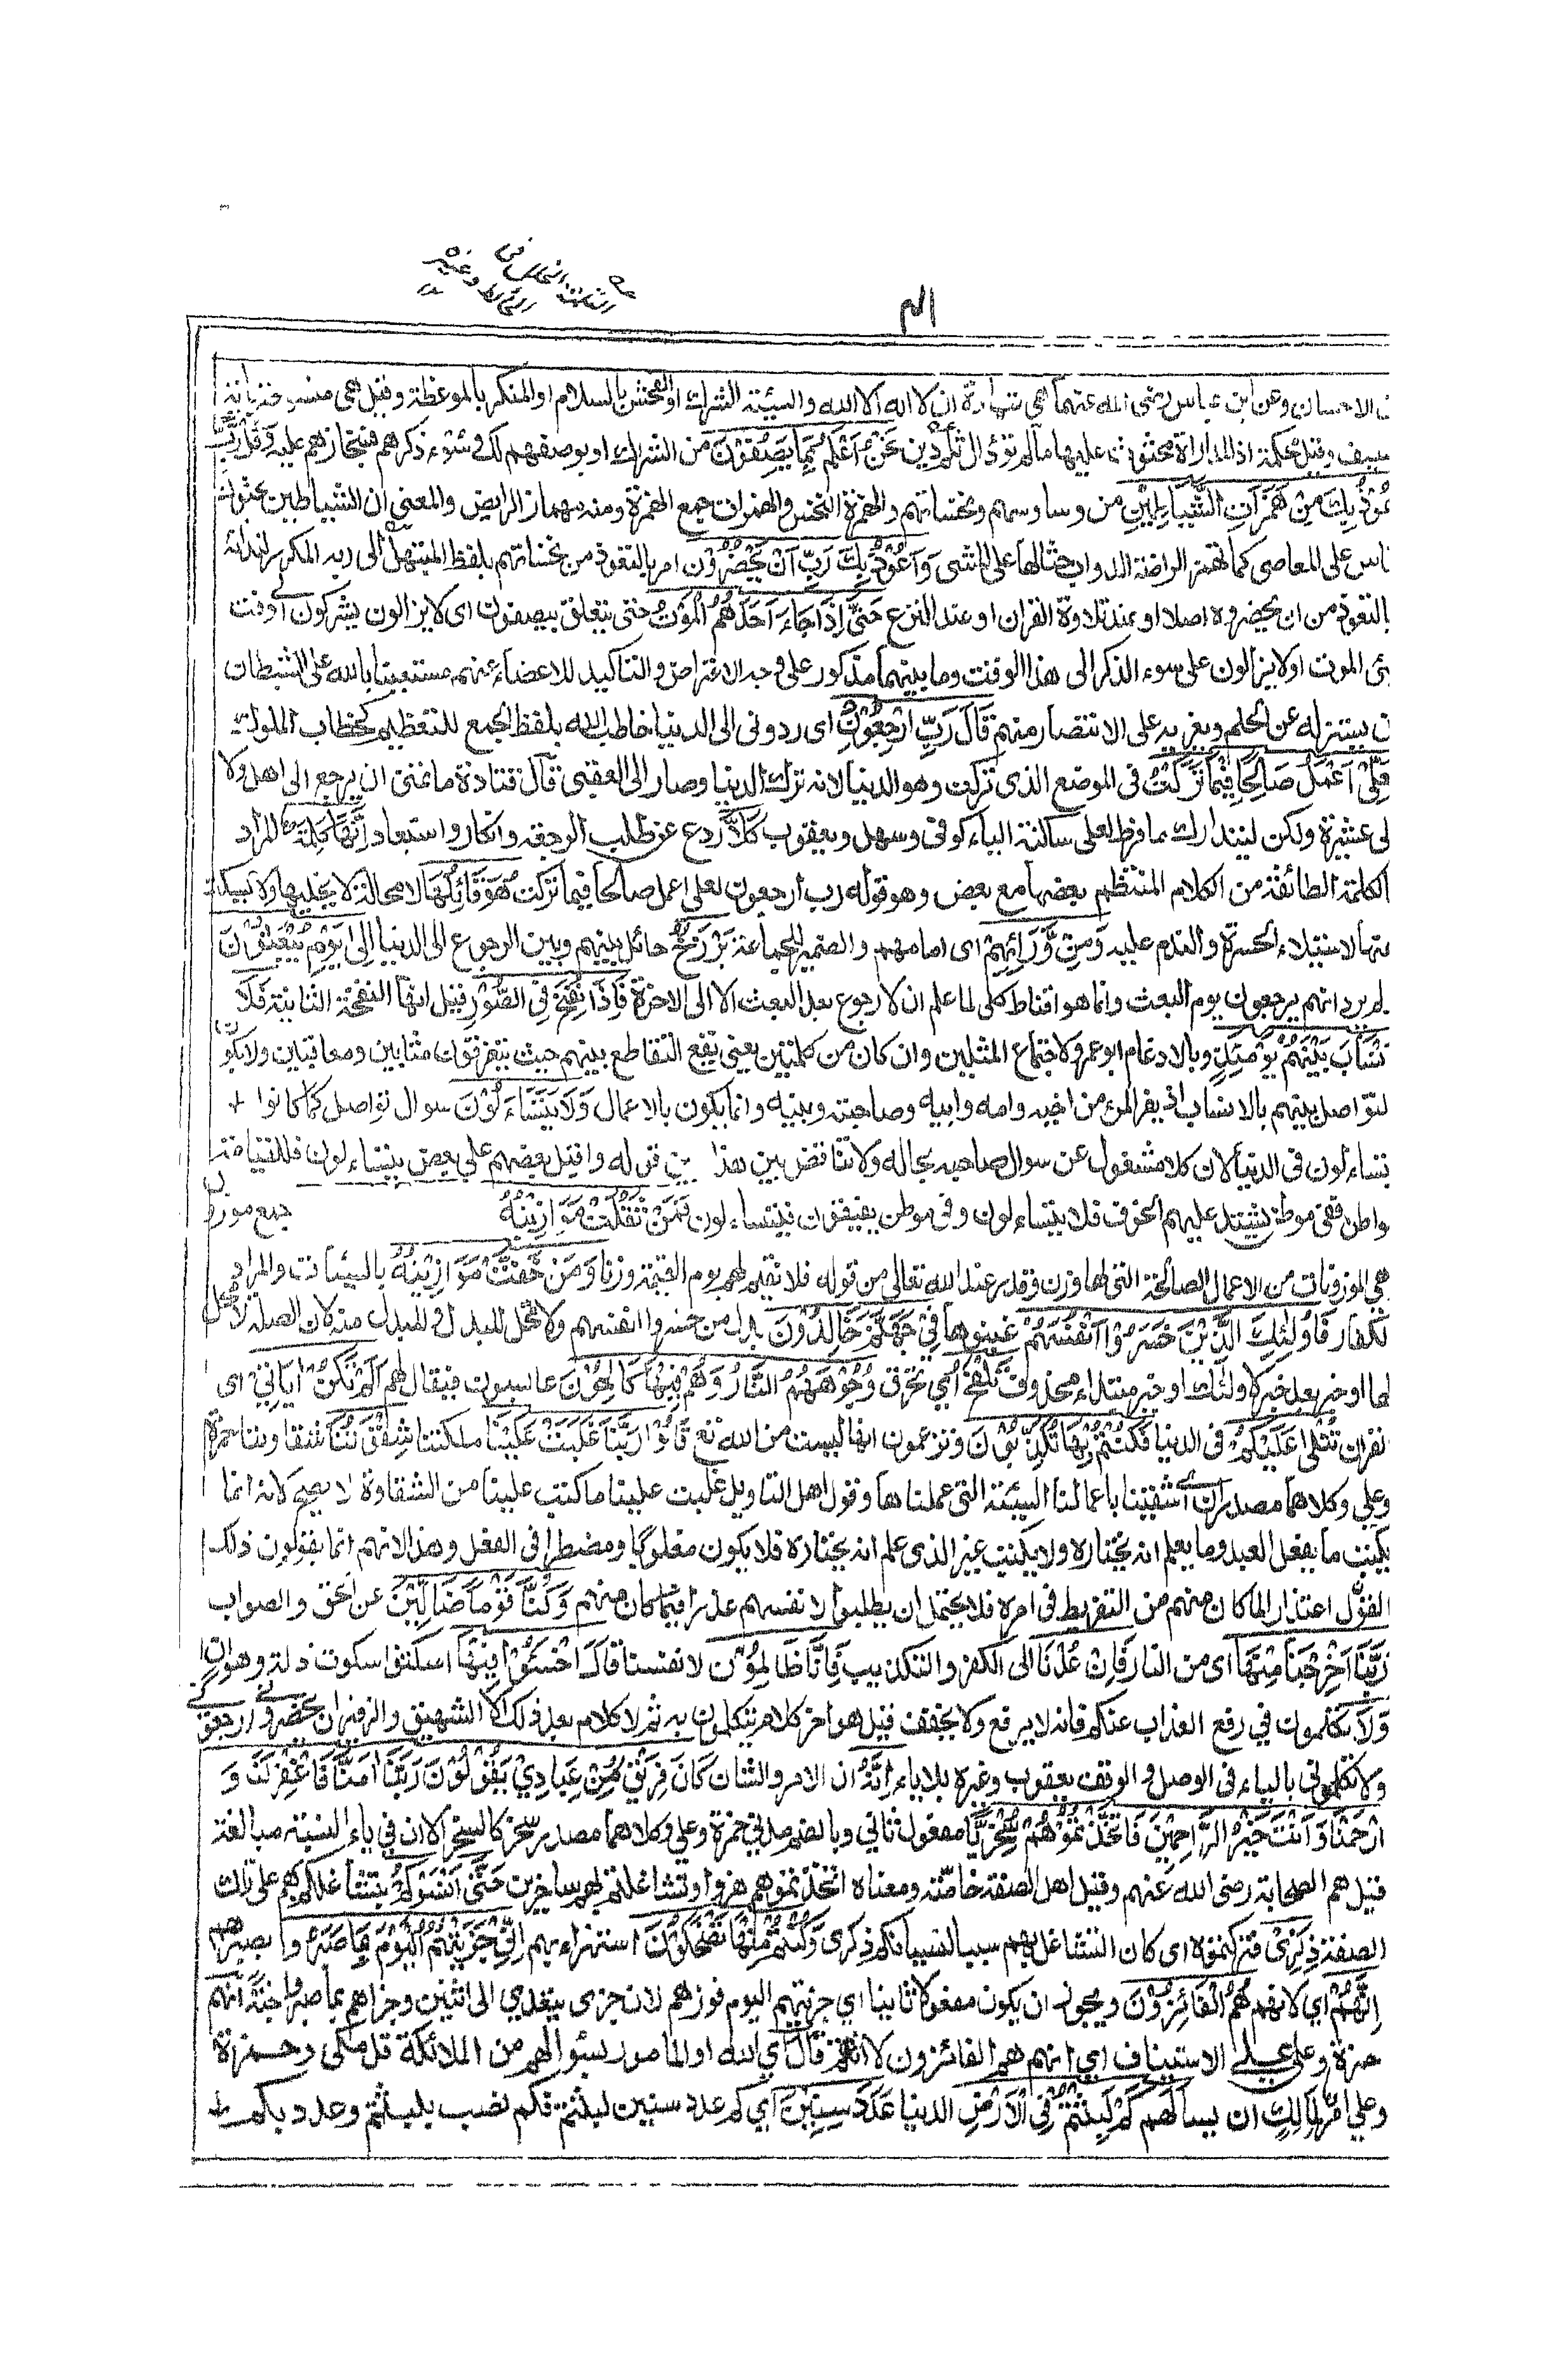 الاحسان وعن ابن عباس رضى الله عنهما هي شهادة ان لا اله الا الله والسيئة الشرك او الفحش بالسلام او المنكر بالموعظة وقيل هى منسوخة باية
السيف وقيل محكمة اذ المداراة محثوث عليها ما لم تؤد الى ثلم دين نَحْنُ اَعْلَمُ بِمَا يَصِفُوْنَ من الشرك او بوصفهم لك وسوء ذكرهم فنجازيهم عليه وَقُلْ رَّبِّ
اَعُوْذُ بِكَ مِنْ هَمَزَاتِ الشَّيَاطِيْنِ من وساوسهم ونخساتهم والهمزة النخس والهمزات جمع الهمزة ومنه مهماز الرايض والمعنى ان الشياطين يحثون
الناس على المعاصى كما تهمز الراضة الدواب حثا لها على المشى وَاَعُوْذُ بِكَ رَبِّ اَنْ يَّحْضُرُوْنِ امر بالتعوذ من نخساتهم بلفظ المبتهل الى ربه المكرر لندائه
بالتعوذ من ان يحضروه اصلا او عند تلاوة القران او عند النزع حَتّٰى اِذَا جَاءَ اَحَدَهُمُ الْمَوْتُ حتى يتعلق بيصفون اى لا يزالون يشركون الى وقت
مجئ الموت او لا يزالون على سوء الذكر الى هذا الوقت وما بينهما مذكور على وجه الاعتراض والتاكيد للاغضاء عنهم مستعينا بالله على الشيطان
ان يستنزله عن الحلم ويغريه على الانتصار منهم قَالَ رَبِّ ارْجِعُوْنِ اى ردونى الى الدنيا خاطب الله بلفظ الجمع للتعظيم كخطاب الملوك
لَعَلِّىْ اَعْمَلُ صَالِحًا فِيْمَا تَرَكْتُ فى الموضع الذى تركت وهو الدنيا لانه ترك الدنيا وصار الى العقبى قال قتادة ما تمنى ان يرجع الى اهل ولا
الى عشيرة ولكن ليتدارك ما فرط لعلى ساكنة الياء كوفى وسهل ويعقوب كَلَّا ردع عن طلب الرجعة وانكار واستبعاد اِنَّهَا كَلِمَةٌ المراد
بالكلمة الطائفة من الكلام المنتظم بعضها مع بعض وهو قوله رب ارجعون لعلى اعمل صالحا فيما تركت هُوَ قَائِلُهَا لا محالة لا يخليها ولا يسكت
عنها لاستيلاء الحسرة والندم عليه وَمِنْ وَّرَائِهِمْ اى امامهم والضمير للجماعة بَرْزَخٌ حائل بينهم وبين الرجوع الى الدنيا اِلٰى يَوْمِ يُبْعَثُوْنَ
لم يرد انهم يرجعون يوم البعث وانما هو اقناط كلى لما علم ان لا رجوع بعد البعث الا الى الاخرة فَاِذَا نُفِخَ فِى الصُّوْرِ قيل انها النفخة الثانية فَلَا
اَنْسَابَ بَيْنَهُمْ يَوْمَئِذٍ وبالادغام ابو عمرو لاجتماع المثلين وان كان من كلمتين يعنى يقع التقاطع بينهم حيث يتفرقون مثابين ومعاقبين ولا يكون
التواصل بينهم بالانساب اذ يفر المرء من اخيه وامه وابيه وصاحبته وبنيه وانما يكون بالاعمال وَلَا يَتَسَاءَلُوْنَ سوال تواصل كما كانوا
يتساءلون فى الدنيا لان كلا مشغول عن سوال صاحبه بحاله ولا تناقض بين هذا بين قوله واقبل بعضهم على بعض يتساءلون فللقيامة
مواطن ففى موطن يشتد عليهم الخوف فلا يتساءلون وفى موطن يفيقون فيتساءلون فَمَنْ ثَقُلَتْ مَوَازِيْنُهُ جمع موزون
هى الموزونات من الاعمال الصالحة التى لها وزن وقدر عند الله تعالى من قوله فلا نقيم لهم يوم القيمة وزنا وَمَنْ خَفَّتْ مَوَازِيْنُهُ بالسيئات والمراد
الكفار فَاُولٰئِكَ الَّذِيْنَ خَسِرُوْا اَنْفُسَهُمْ غبنوها فِىْ جَهَنَّمَ خَالِدُوْنَ بدل من خسروا انفسهم ولا محل للبدل والمبدل منه لان الصلة لا محل
لها او خبر بعد خبر لاولئك او خبر مبتداء محذوف تَلْفَحُ اى تحرق وُجُوْهَهُمُ النَّارُ وَهُمْ فِيْهَا كَالِحُوْنَ عابسون فيقال لهم اَلَمْ تَكُنْ اٰيَاتِىْ اى
القران تُتْلٰى عَلَيْكُمْ فى الدنيا فَكُنْتُمْ بِهَا تُكَذِّبُوْنَ وتزعمون انها ليست من الله تع قَالُوْا رَبَّنَا غَلَبَتْ عَلَيْنَا ملكتنا شِقْوَتُنَا شقاوتنا حمزة
وعلى وكلاهما مصدران اى شقينا باعمالنا السيئة التى عملناها وقول اهل التاويل غلبت علينا ما كتب علينا من الشقاوة لا يصح لانه انما
يكتب ما يفعل العبد وما يعلم انه يختاره ولا يكتب غير الذى علم انه يختاره فلا يكون مغلوبا ومضطرا فى الفعل وهذا لانهم انما يقولون ذلك
القول اعتذارا لما كان منهم من التفريط فى امره فلا يحتمل ان يطلبوا لانفسهم عذرا فيما كان منهم وَكُنَّا قَوْمًا ضَالِّيْنَ عن الحق والصواب
رَبَّنَا اَخْرِجْنَا مِنْهَا اى من النار فَاِنْ عُدْنَا الى الكفر والتكذيب فَاِنَّا ظَالِمُوْنَ لانفسنا قَالَ اخْسَئُوْا فِيْهَا اسكتوا سكوت ذلة وهوان
وَلَا تُكَلِّمُوْنِ فى رفع العذاب عنكم فانه لا يرفع ولا يخفف قيل هو اخر كلام يتكلمون به ثم لا كلام بعد ذلك الا الشهيق والزفير ان يحضرونى ارجعونى
ولا تكلمونى بالياء فى الوصل والوقف يعقوب وغيره بلا ياء اِنَّهُ ان الامر والشان كَانَ فَرِيْقٌ مِّنْ عِبَادِىْ يَقُوْلُوْنَ رَبَّنَا اٰمَنَّا فَاغْفِرْ لَنَا وَ
ارْحَمْنَا وَاَنْتَ خَيْرُ الرَّاحِمِيْنَ فَاتَّخَذْتُمُوْهُمْ سِخْرِيًّا مفعول ثانى وبالضم مدنى حمزة وعلى وكلاهما مصدر سخر كالسخر الا ان فى ياء النسبة مبالغة
قيل هم الصحابة رضى الله عنهم وقيل اهل الصفة خاصة ومعناه اتخذتموهم هزوا وتشاغلتم بهم ساخرين حَتّٰى اَنْسَوْكُمْ بتشاغلكم بهم على تلك
الصفة ذِكْرِىْ فتركتموه اى كان التشاغل بهم سببا لنسيانكم ذكرى وَكُنْتُمْ مِّنْهُمْ تَضْحَكُوْنَ استهزاء بهم اِنِّىْ جَزَيْتُهُمُ الْيَوْمَ بِمَا صَبَرُوْا بصبرهم
اَنَّهُمْ اى لانهم هُمُ الْفَائِزُوْنَ ويجوز ان يكون مفعولا ثانيا اى جزيتهم اليوم فوزهم لان جزى يتعدى الى اثنين وجزاهم بما صبروا جنة انهم
حمزة وعلى على الاستيناف اى انهم هم الفائزون لا انتم قَالَ اى الله او المامور بسؤالهم من الملائكة قل مكى وحمزة
وعلى امر لمالك ان يسالهم كَمْ لَبِثْتُمْ فِى الْاَرْضِ الدنيا عَدَدَ سِنِيْنَ اى كم عدد سنين لبثتم فكم نصب بلبثتم وعدد بكم